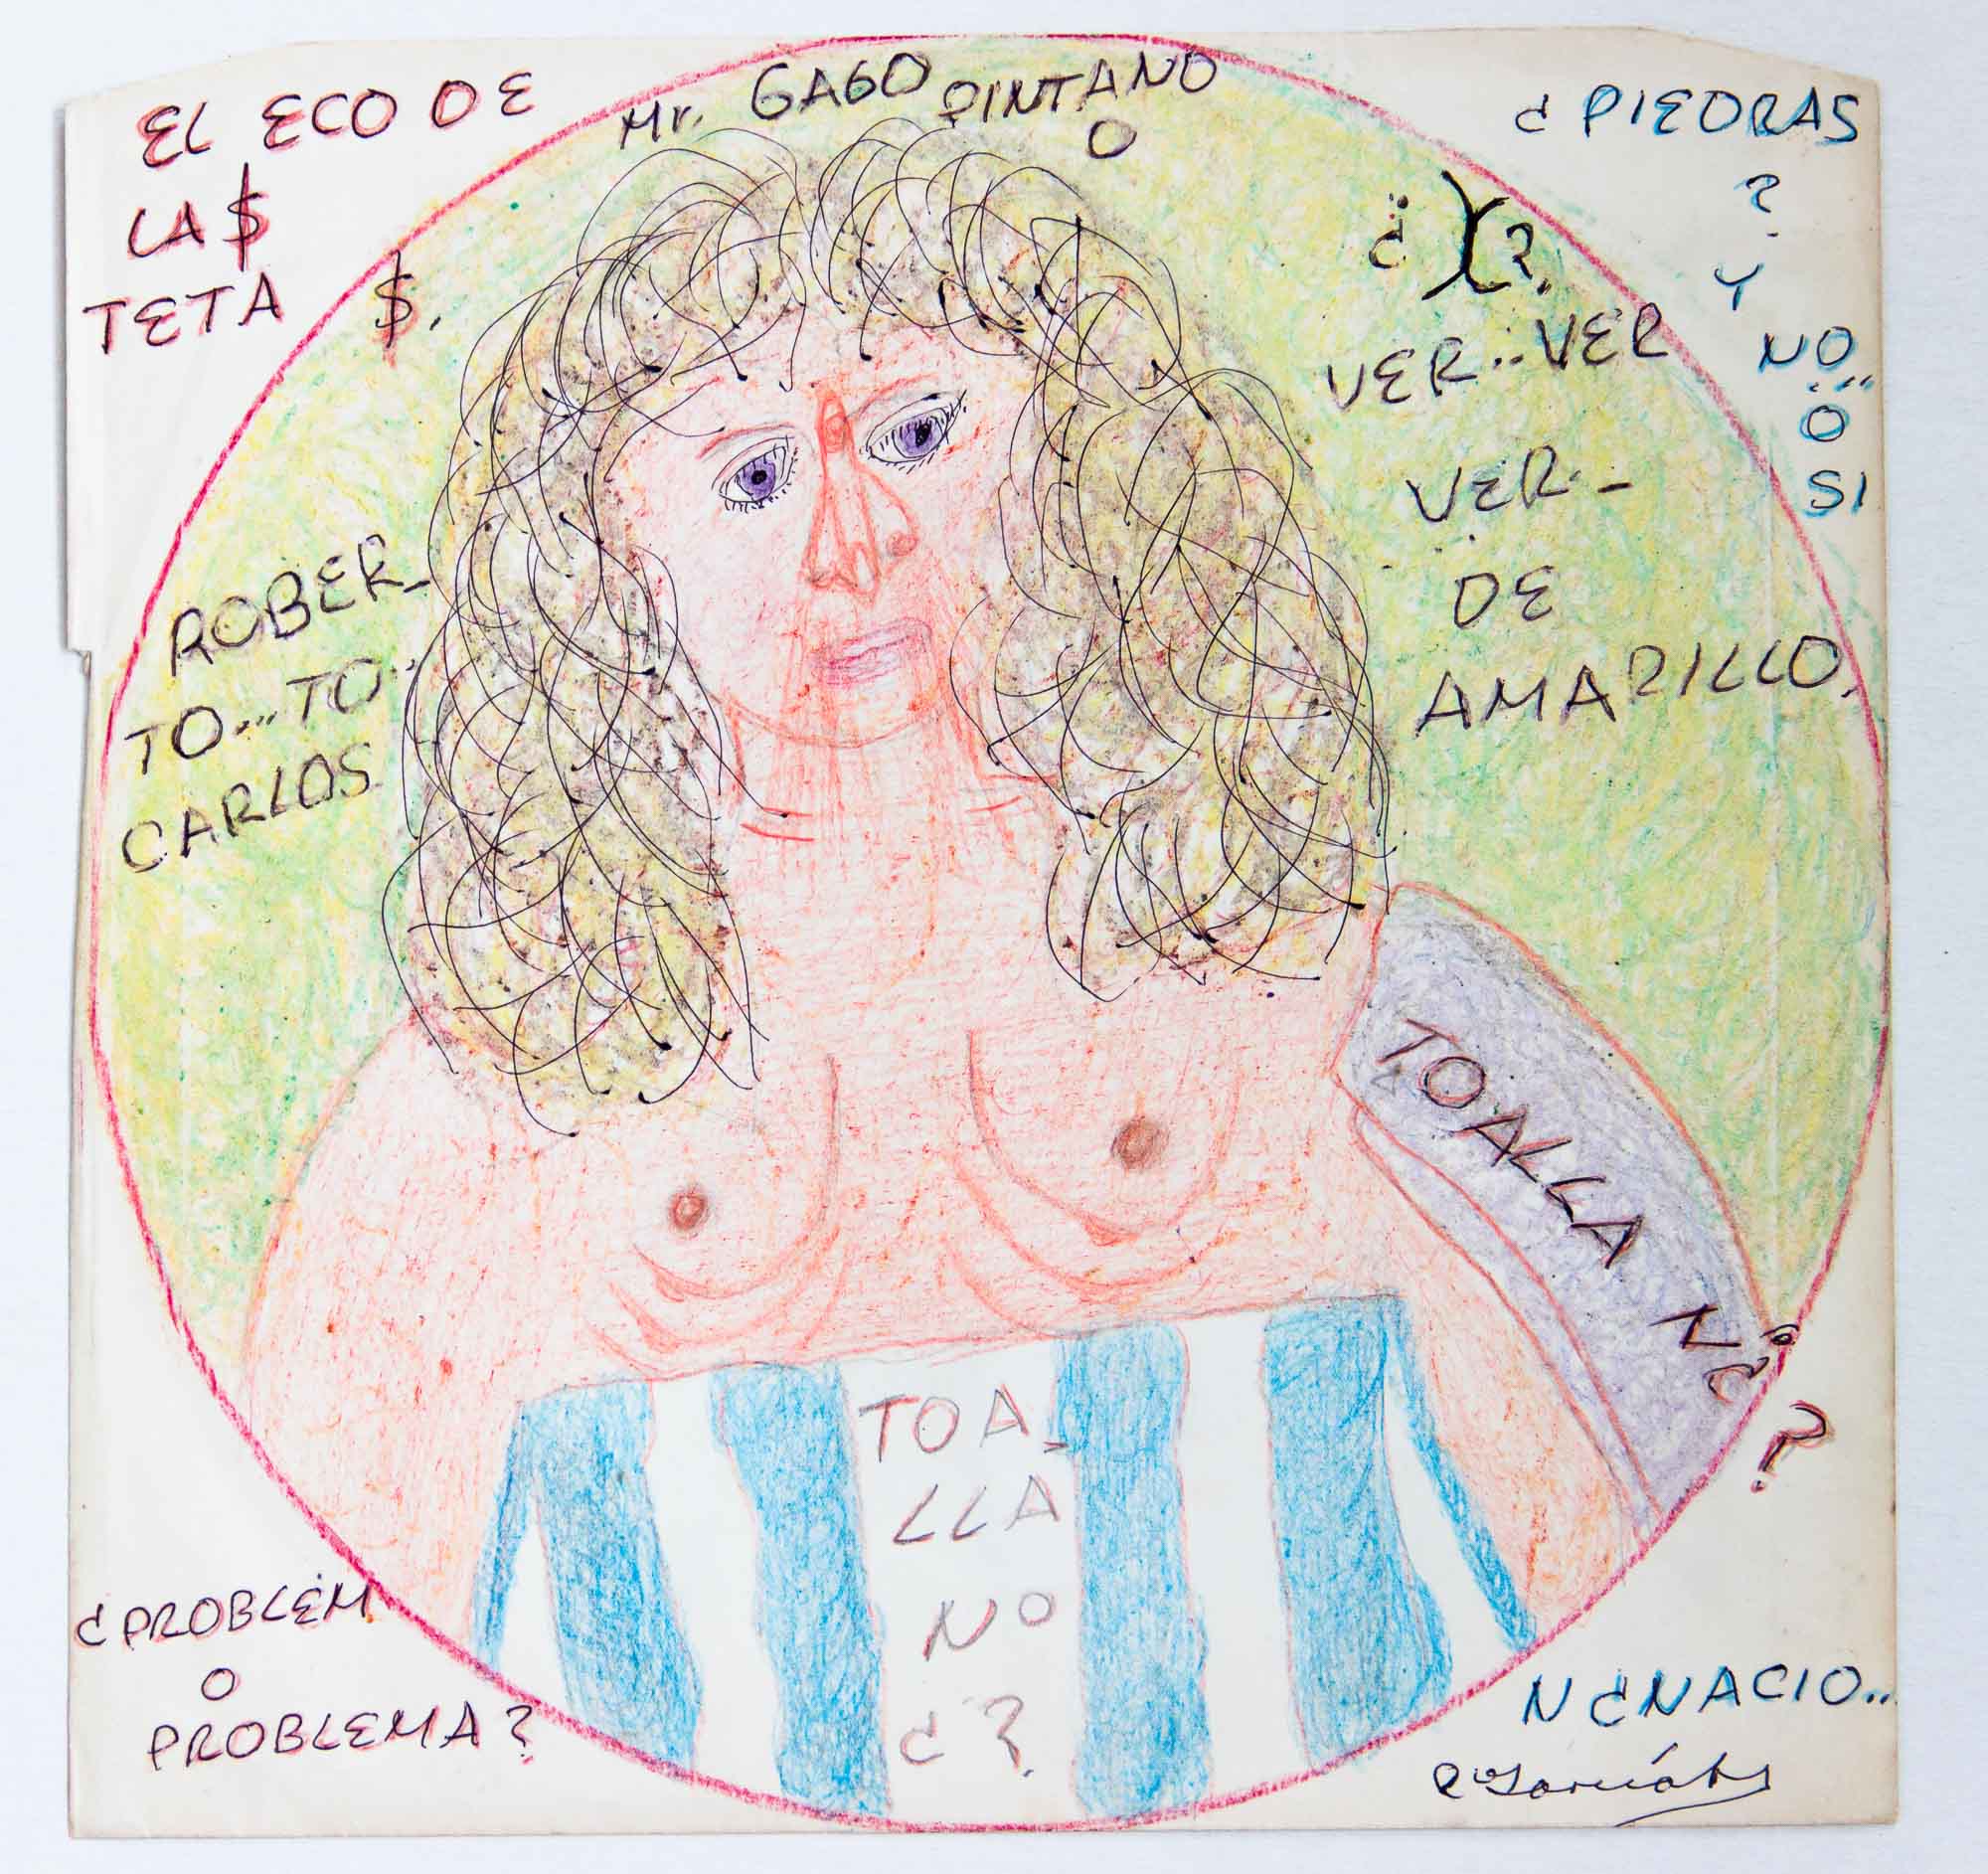 EL ECO DE
LA$
TETA $.
Mr. GAGO PINTANO
O
¿ PIEDRAS
?
Y
NO...
O
SI
¿ )( ?.
VER..VER
VER.-
DE
AMARILLO.
ROBER-
TO...TO..
CARLOS.
TOALLA Nº
¿
?
TOA-
LLA
NO
¿ ?.
¿PROBLEM
O
PROBLEMA?
N¿NACIO..